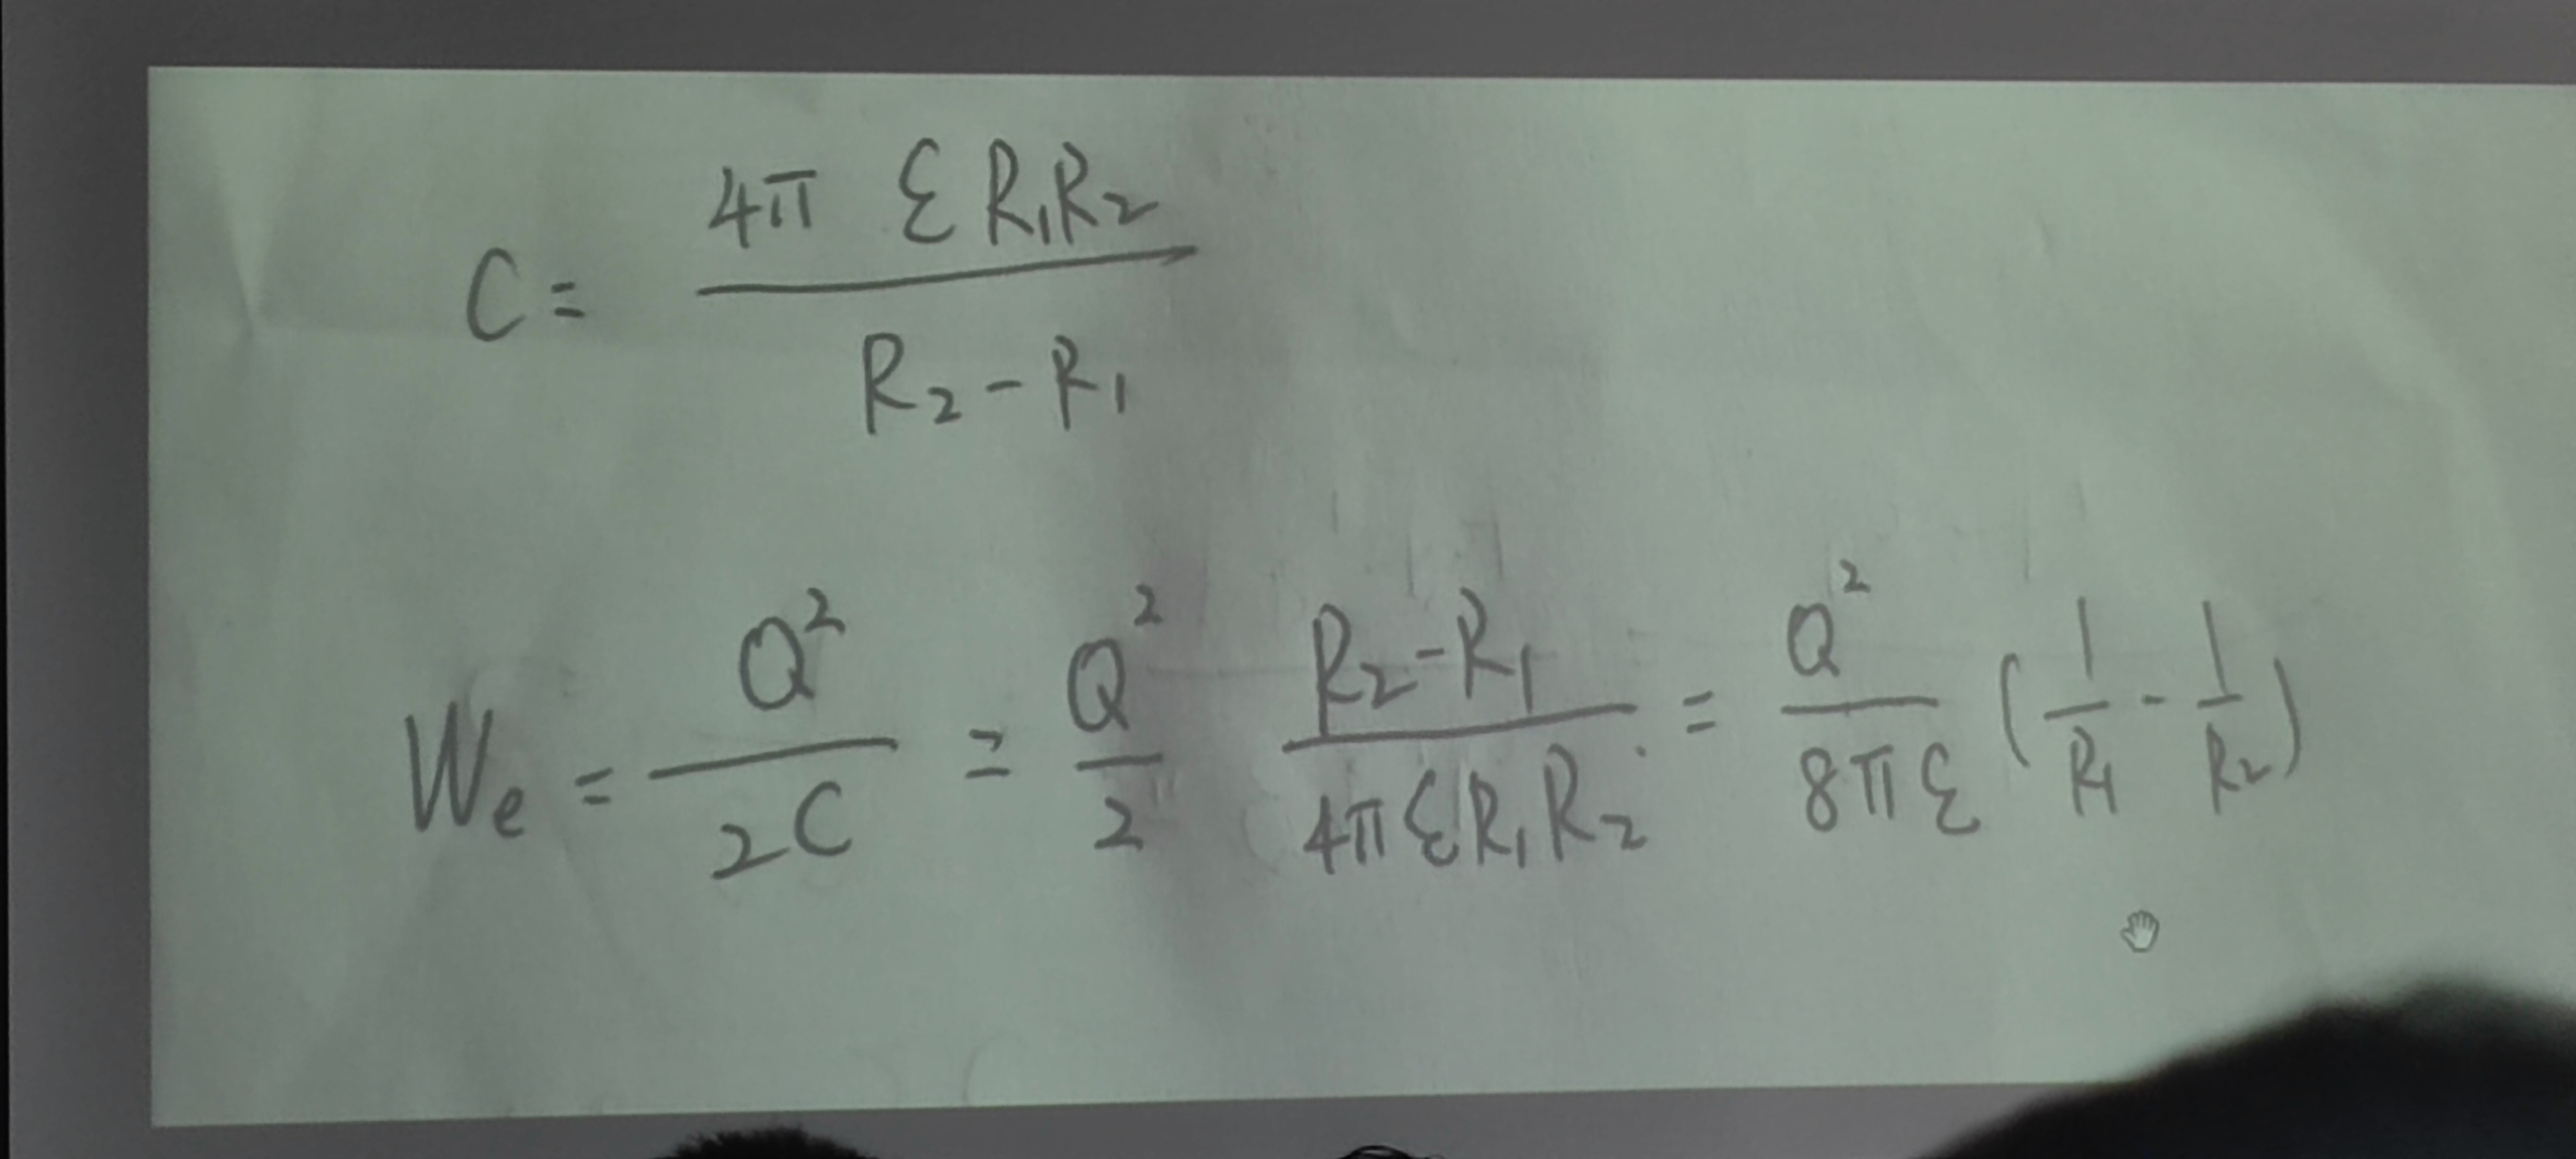 C = \frac{4π ε R₁R₂}{R₂ - R₁}
Wₑ = \frac{Q²}{2C} = \frac{Q²}{2} \frac{R₂ - R₁}{4π ε R₁ R₂} · = \frac{Q²}{8π ε} (\frac{1}{R₁} - \frac{1}{R₂})